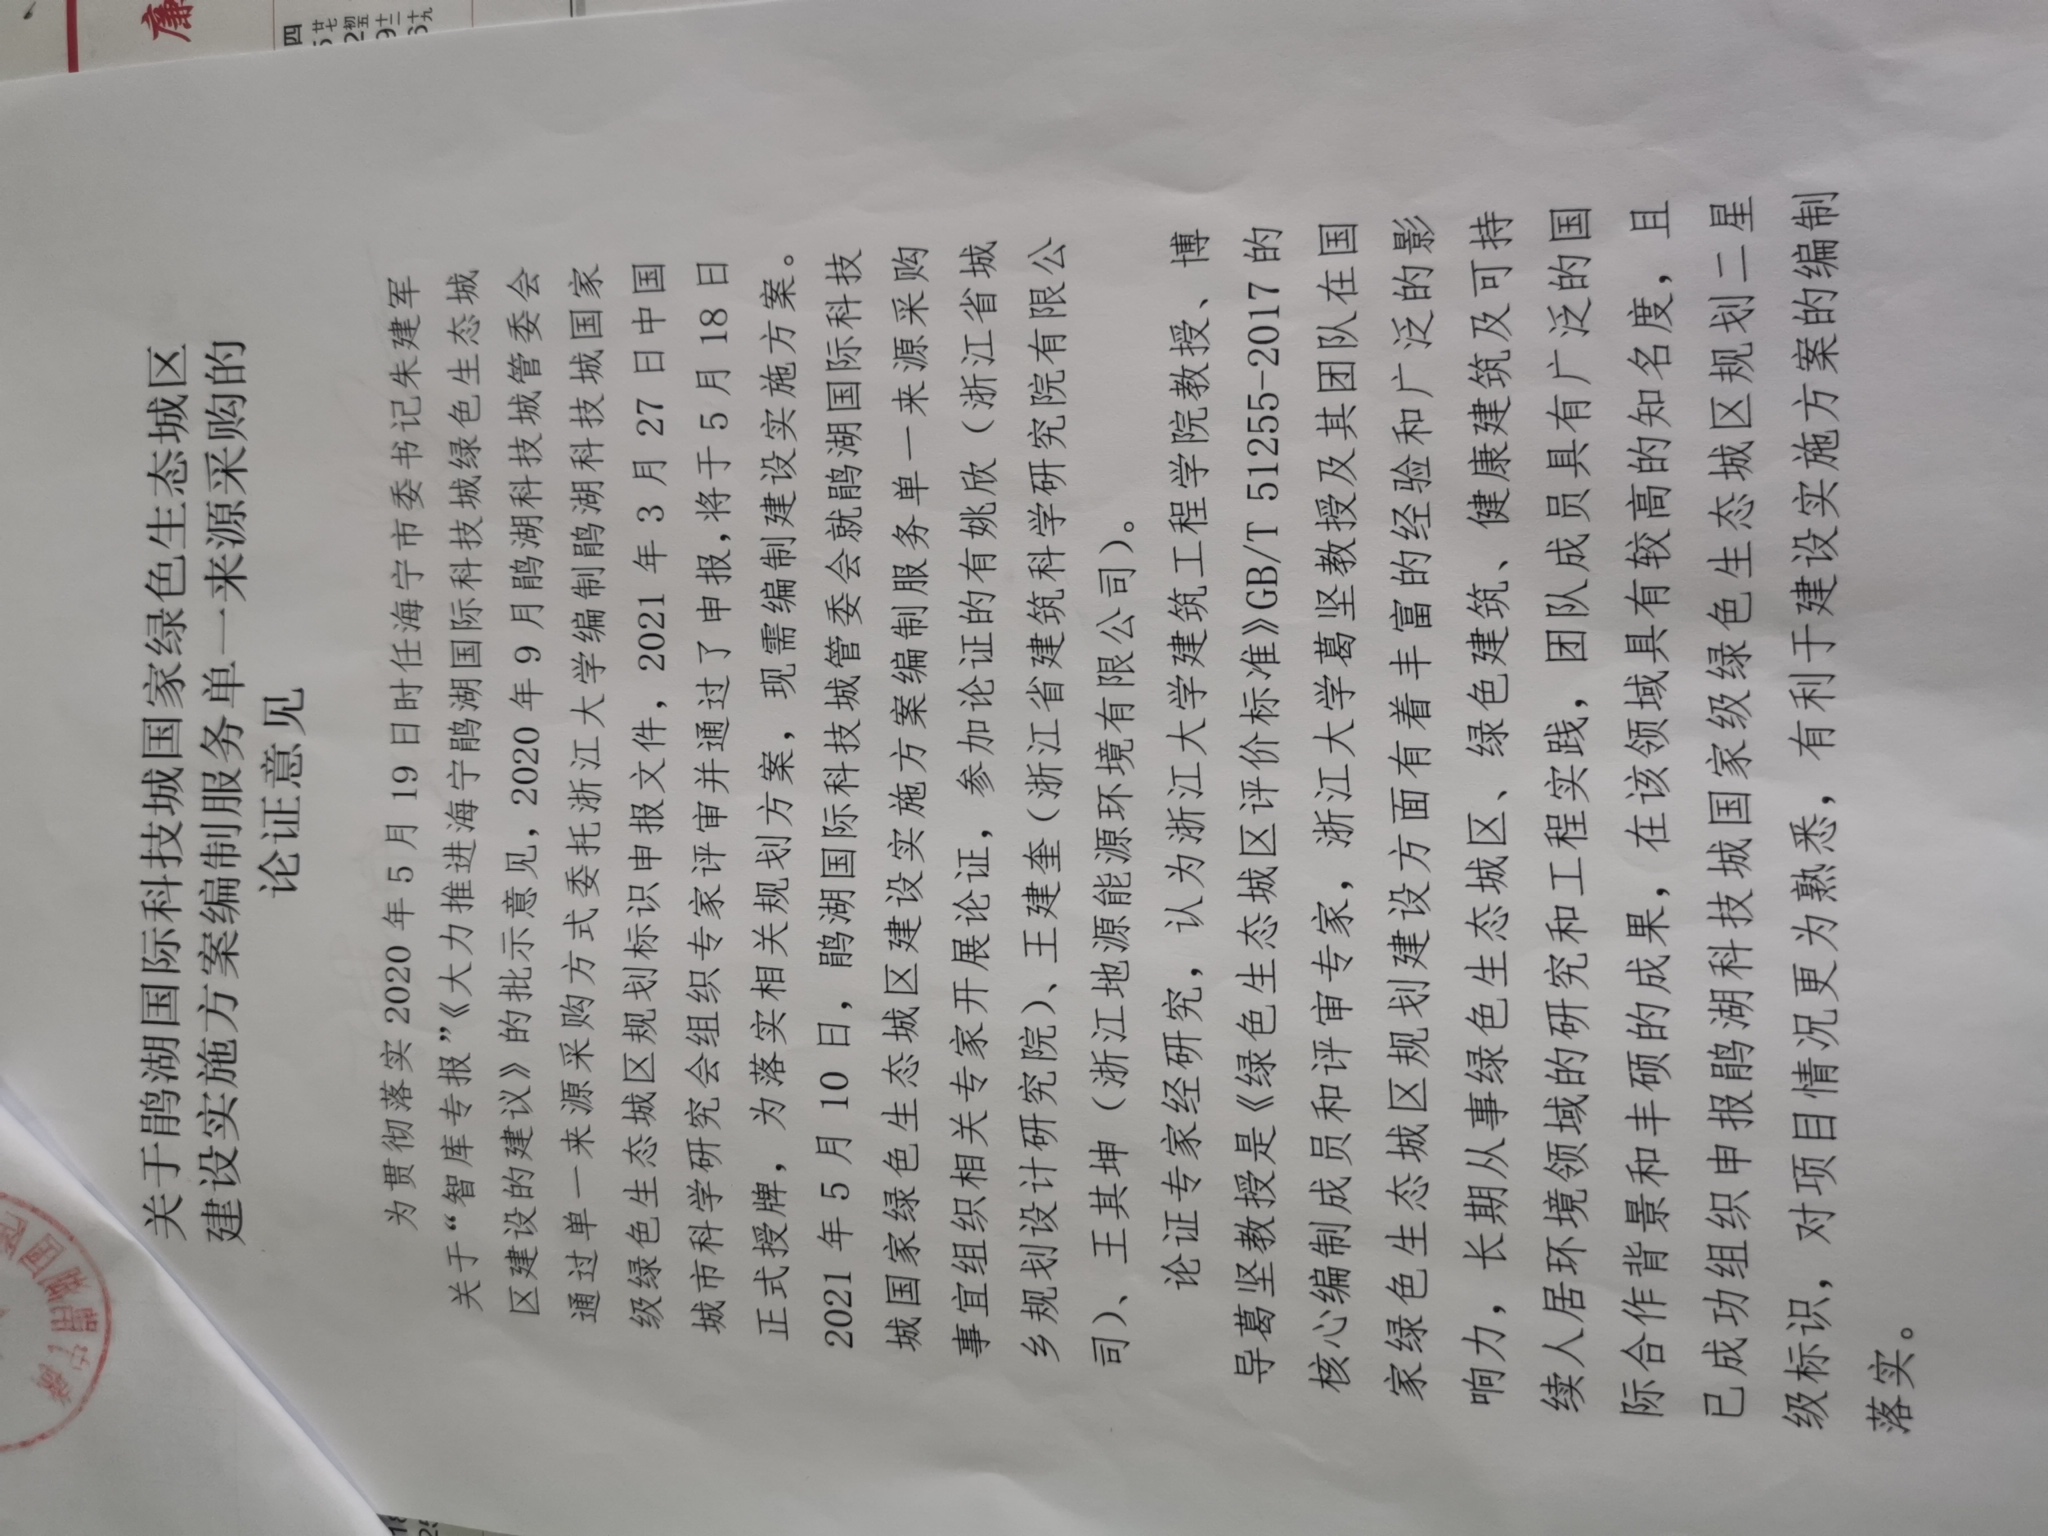 关于鹃湖国际科技城国家绿色生态城区
建设实施方案编制服务单一来源采购的
论证意见
为贯彻落实 2020 年 5 月 19 日时任海宁市委书记朱建军
关于“智库专报”《大力推进海宁鹃湖国际科技城绿色生态城
区建设的建议》的批示意见，2020 年 9 月鹃湖科技城管委会
通过单一来源采购方式委托浙江大学编制鹃湖科技城国家
级绿色生态城区规划标识申报文件，2021 年 3 月 27 日中国
城市科学研究会组织专家评审并通过了申报，将于 5 月 18 日
正式授牌，为落实相关规划方案，现需编制建设实施方案。
2021 年 5 月 10 日，鹃湖国际科技城管委会就鹃湖国际科技
城国家绿色生态城区建设实施方案编制服务单一来源采购
事宜组织相关专家开展论证，参加论证的有姚欣（浙江省城
乡规划设计研究院）、王建奎（浙江省建筑科学研究院有限公
司）、王其坤（浙江地源能源环境有限公司）。
论证专家经研究，认为浙江大学建筑工程学院教授、博
导葛坚教授是《绿色生态城区评价标准》GB/T 51255-2017 的
核心编制成员和评审专家，浙江大学葛坚教授及其团队在国
家绿色生态城区规划建设方面有着丰富的经验和广泛的影
响力，长期从事绿色生态城区、绿色建筑、健康建筑及可持
续人居环境领域的研究和工程实践，团队成员具有广泛的国
际合作背景和丰硕的成果，在该领域具有较高的知名度，且
已成功组织申报鹃湖科技城国家级绿色生态城区规划二星
级标识，对项目情况更为熟悉，有利于建设实施方案的编制
落实。
廉
四
廿七
初五
十二
十九